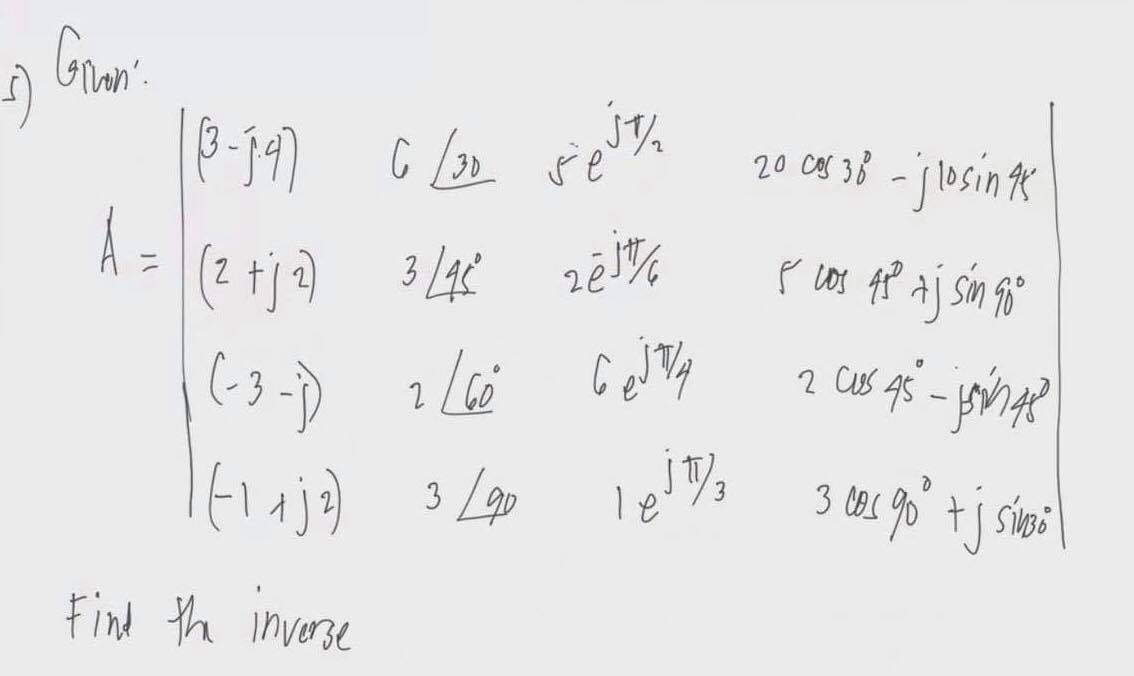 5) Given:
A = | (3-j4) 6 ∠30 5e^jπ/2 20 cos 30° - j10 sin 45 |
| (2+j2) 3 ∠45° 2e^-jπ/6 5 cos 45° + j sin 90° |
| (-3-j) 2 ∠60° 6e^jπ/4 2 cos 45° - j sin 45° |
| (-1+j2) 3 ∠90 1e^jπ/3 3 cos 90° + j sin 30° |
Find the inverse